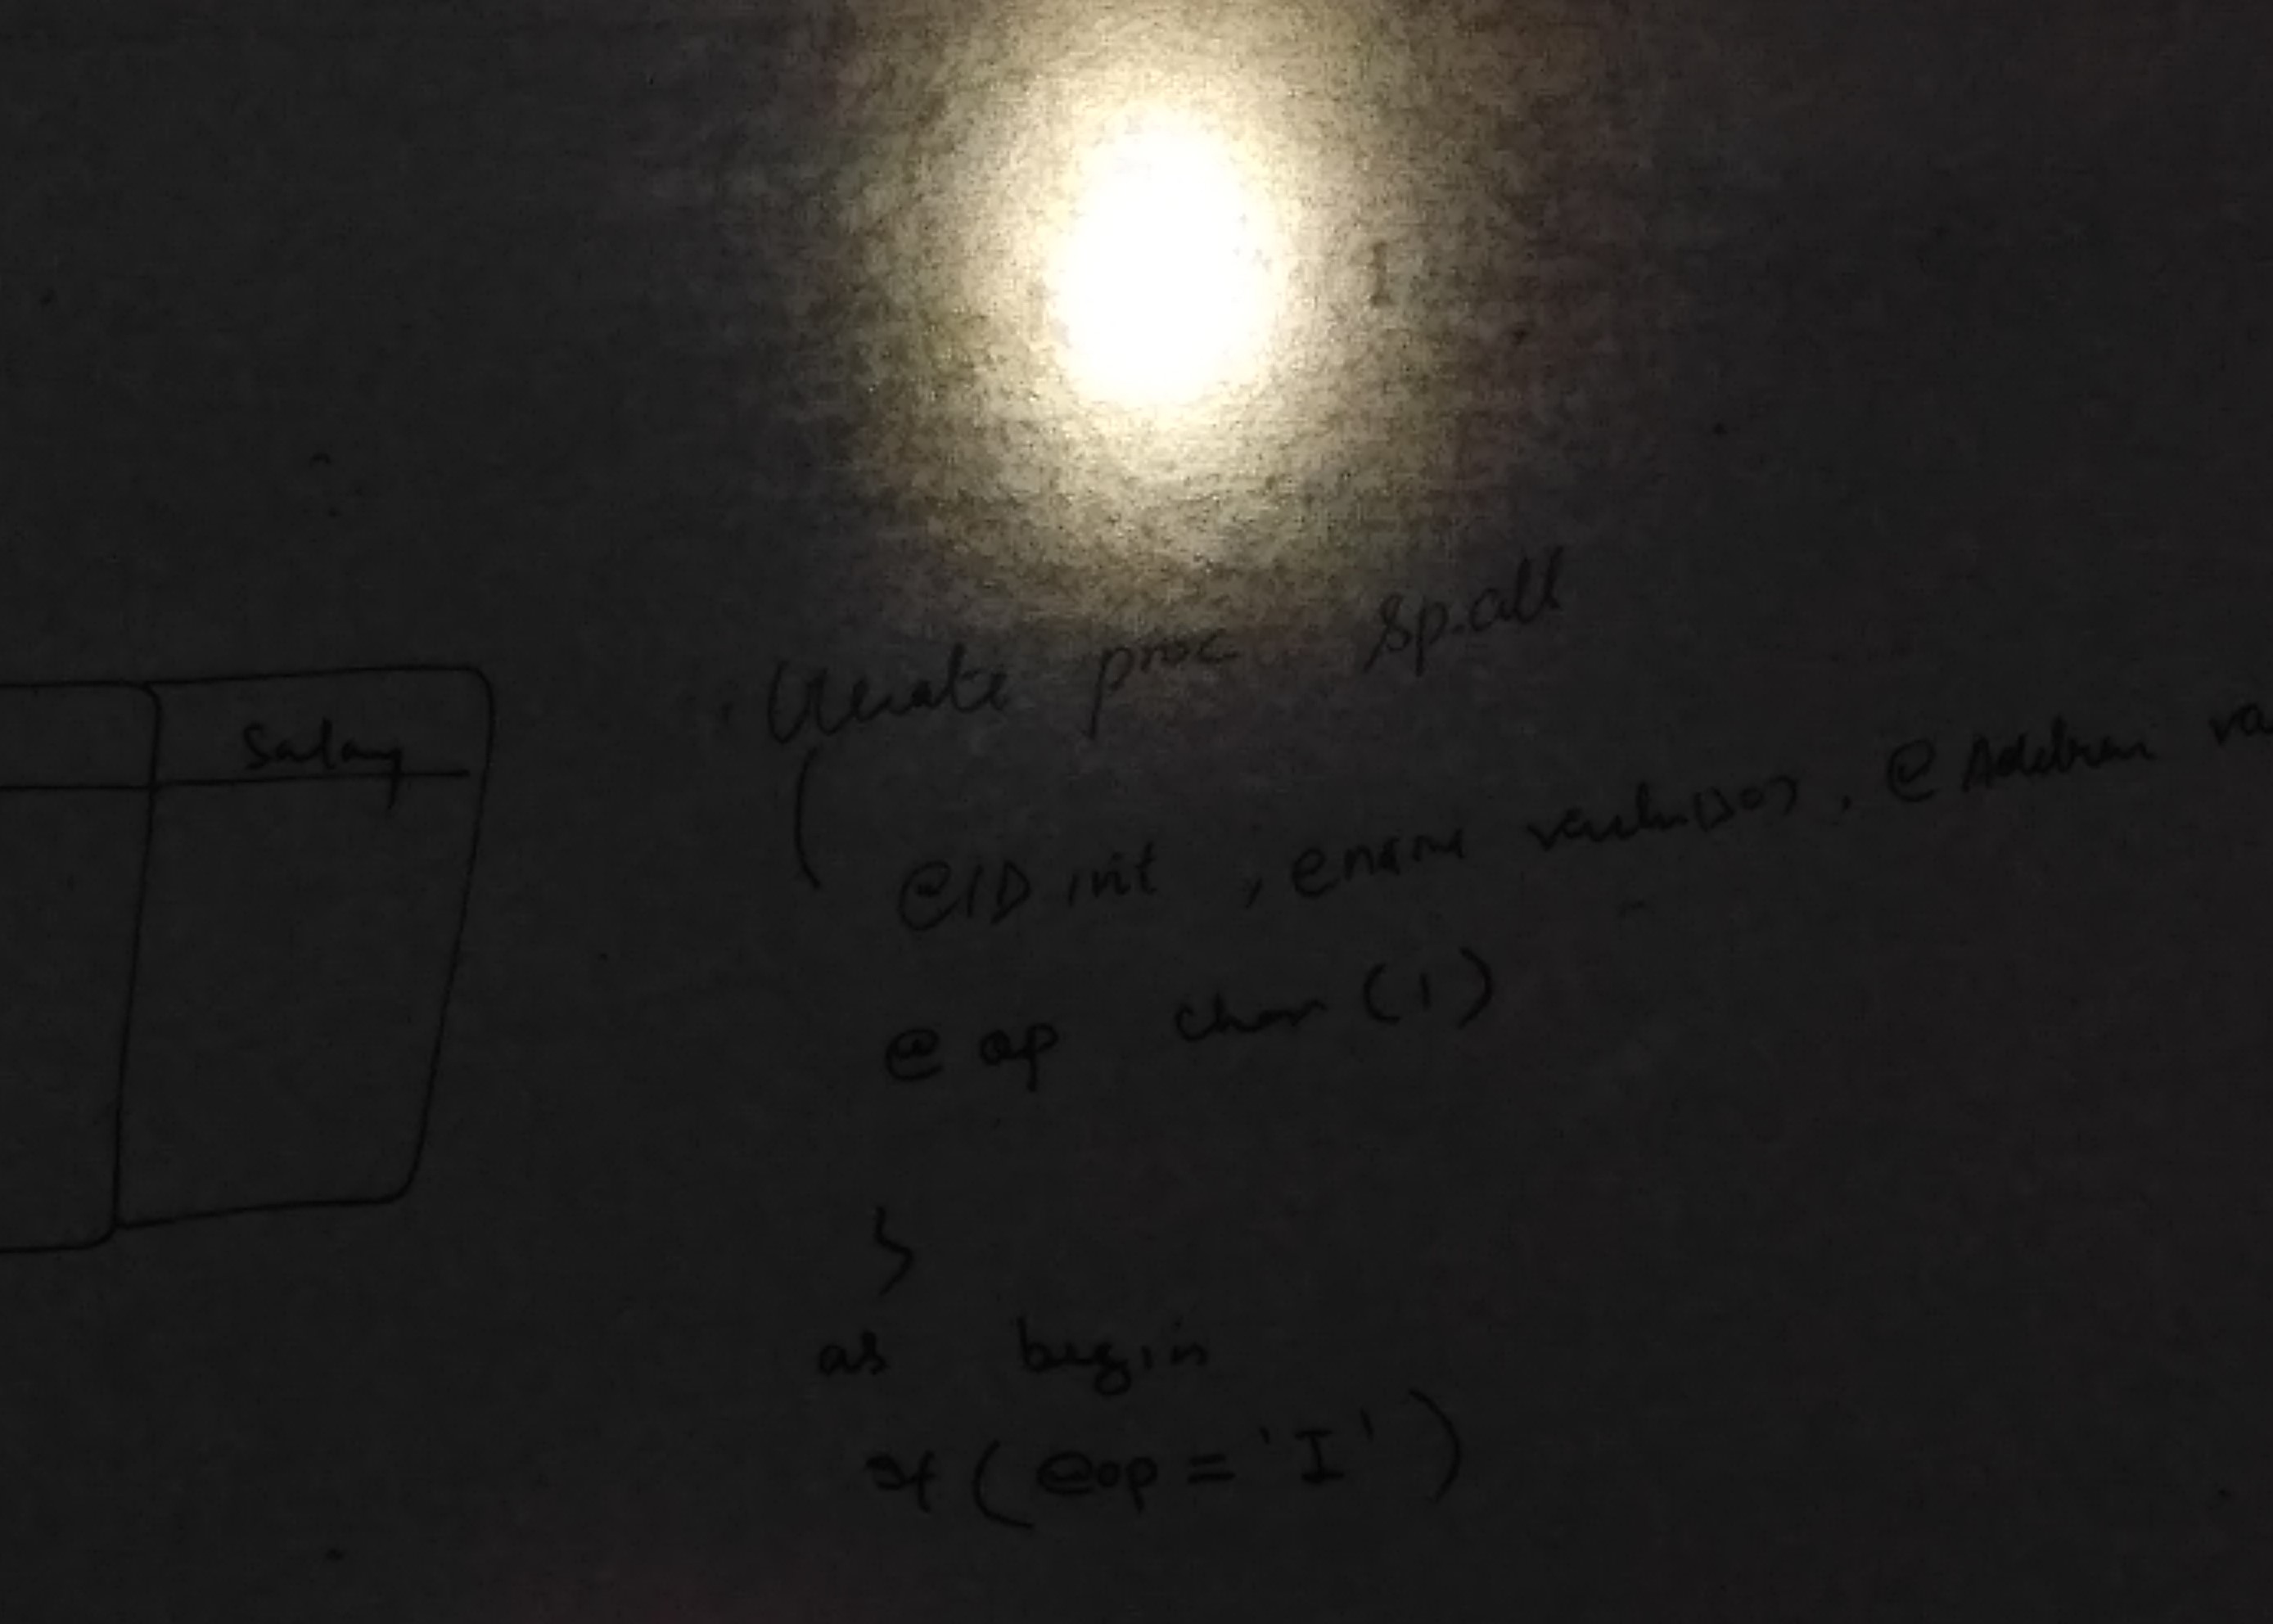 Salary
Create proc sp.all
(
@ID int , @name varchar(50) , @Address va
@op char (1)
)
as begin
if ( @op = 'I' )